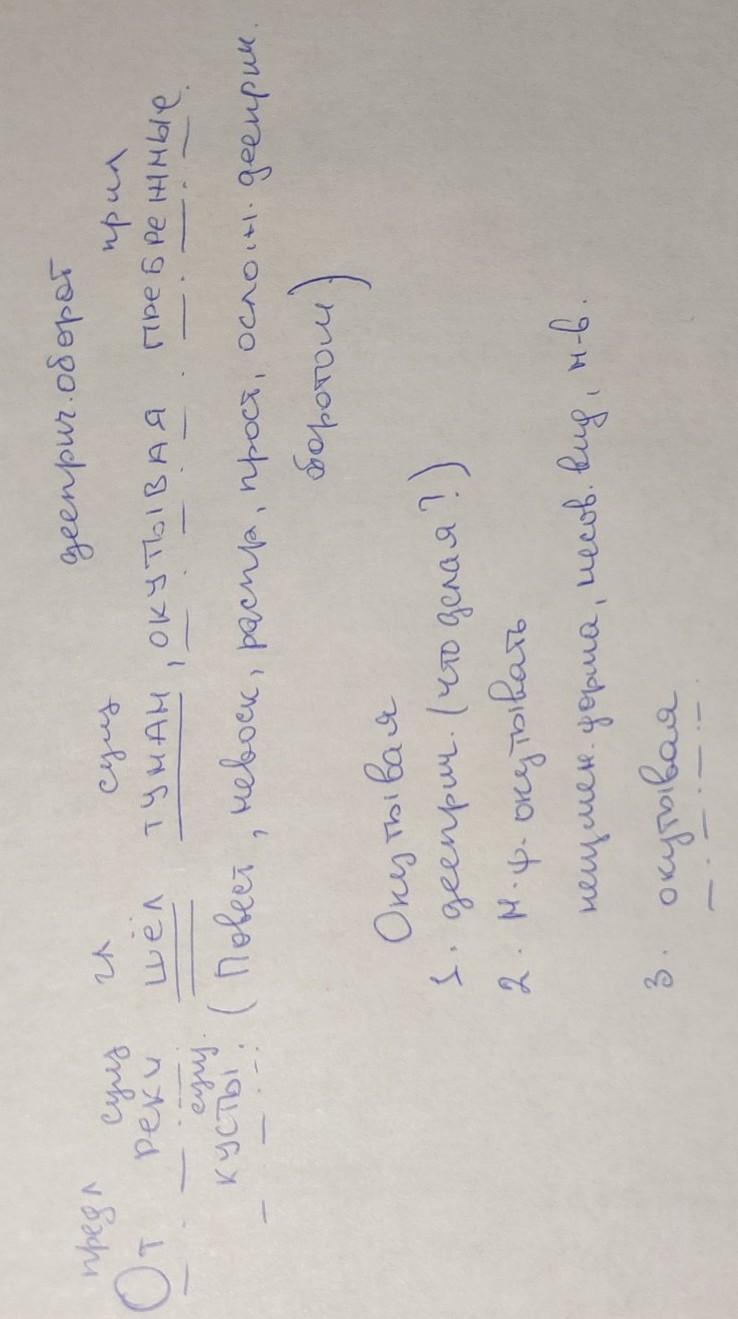 дееприч. оборот
предл сущ гл сущ прил
От реки шёл туман, окутывая пребрежные
сущ.
кусты. (Повест, невоск, распр, прост, ослож. дееприч.
оборотом)
Окутывая
1. дееприч. (что делая?)
2. Н.ф. окутывать
неизмен. форма, несов. вид, н-в.
3. окутывая